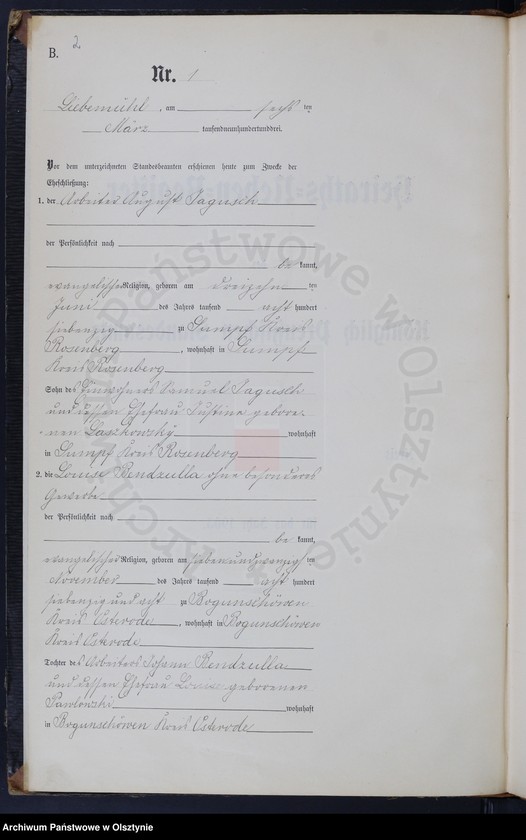 B.
2
Nr. 1
Liebemühl, am sechsten
März tausendneunhundertunddrei.
Vor dem unterzeichneten Standesbeamten erschienen heute zum Zwecke der
Eheschließung:
1. der Arbeiter August Jagusch
der Persönlichkeit nach
be kannt,
evangelischer Religion, geboren am dreizehnten
Juni des Jahres tausend acht hundert
siebenzig zu Sumpf Kreis
Rosenberg, wohnhaft in Sumpf
Kreis Rosenberg
Sohn des Einwohners Samuel Jagusch
und dessen Ehefrau Justine gebore-
nen Laszkowsky wohnhaft
in Sumpf Kreis Rosenberg
2. die Louise Bendzulla ohne besonderes
Gewerbe
der Persönlichkeit nach
be kannt,
evangelischer Religion, geboren am siebenundzwanzigsten
November des Jahres tausend acht hundert
siebenzig und acht zu Bogunschöwen
Kreis Osterode, wohnhaft in Bogunschöwen
Kreis Osterode
Tochter des Arbeiters Johann Bendzulla
und dessen Ehefrau Louise geborenen
Pawlowski wohnhaft
in Bogunschöwen Kreis Osterode
Archiwum Państwowe w Olsztynie
Archiwum Państwowe w Olsztynie